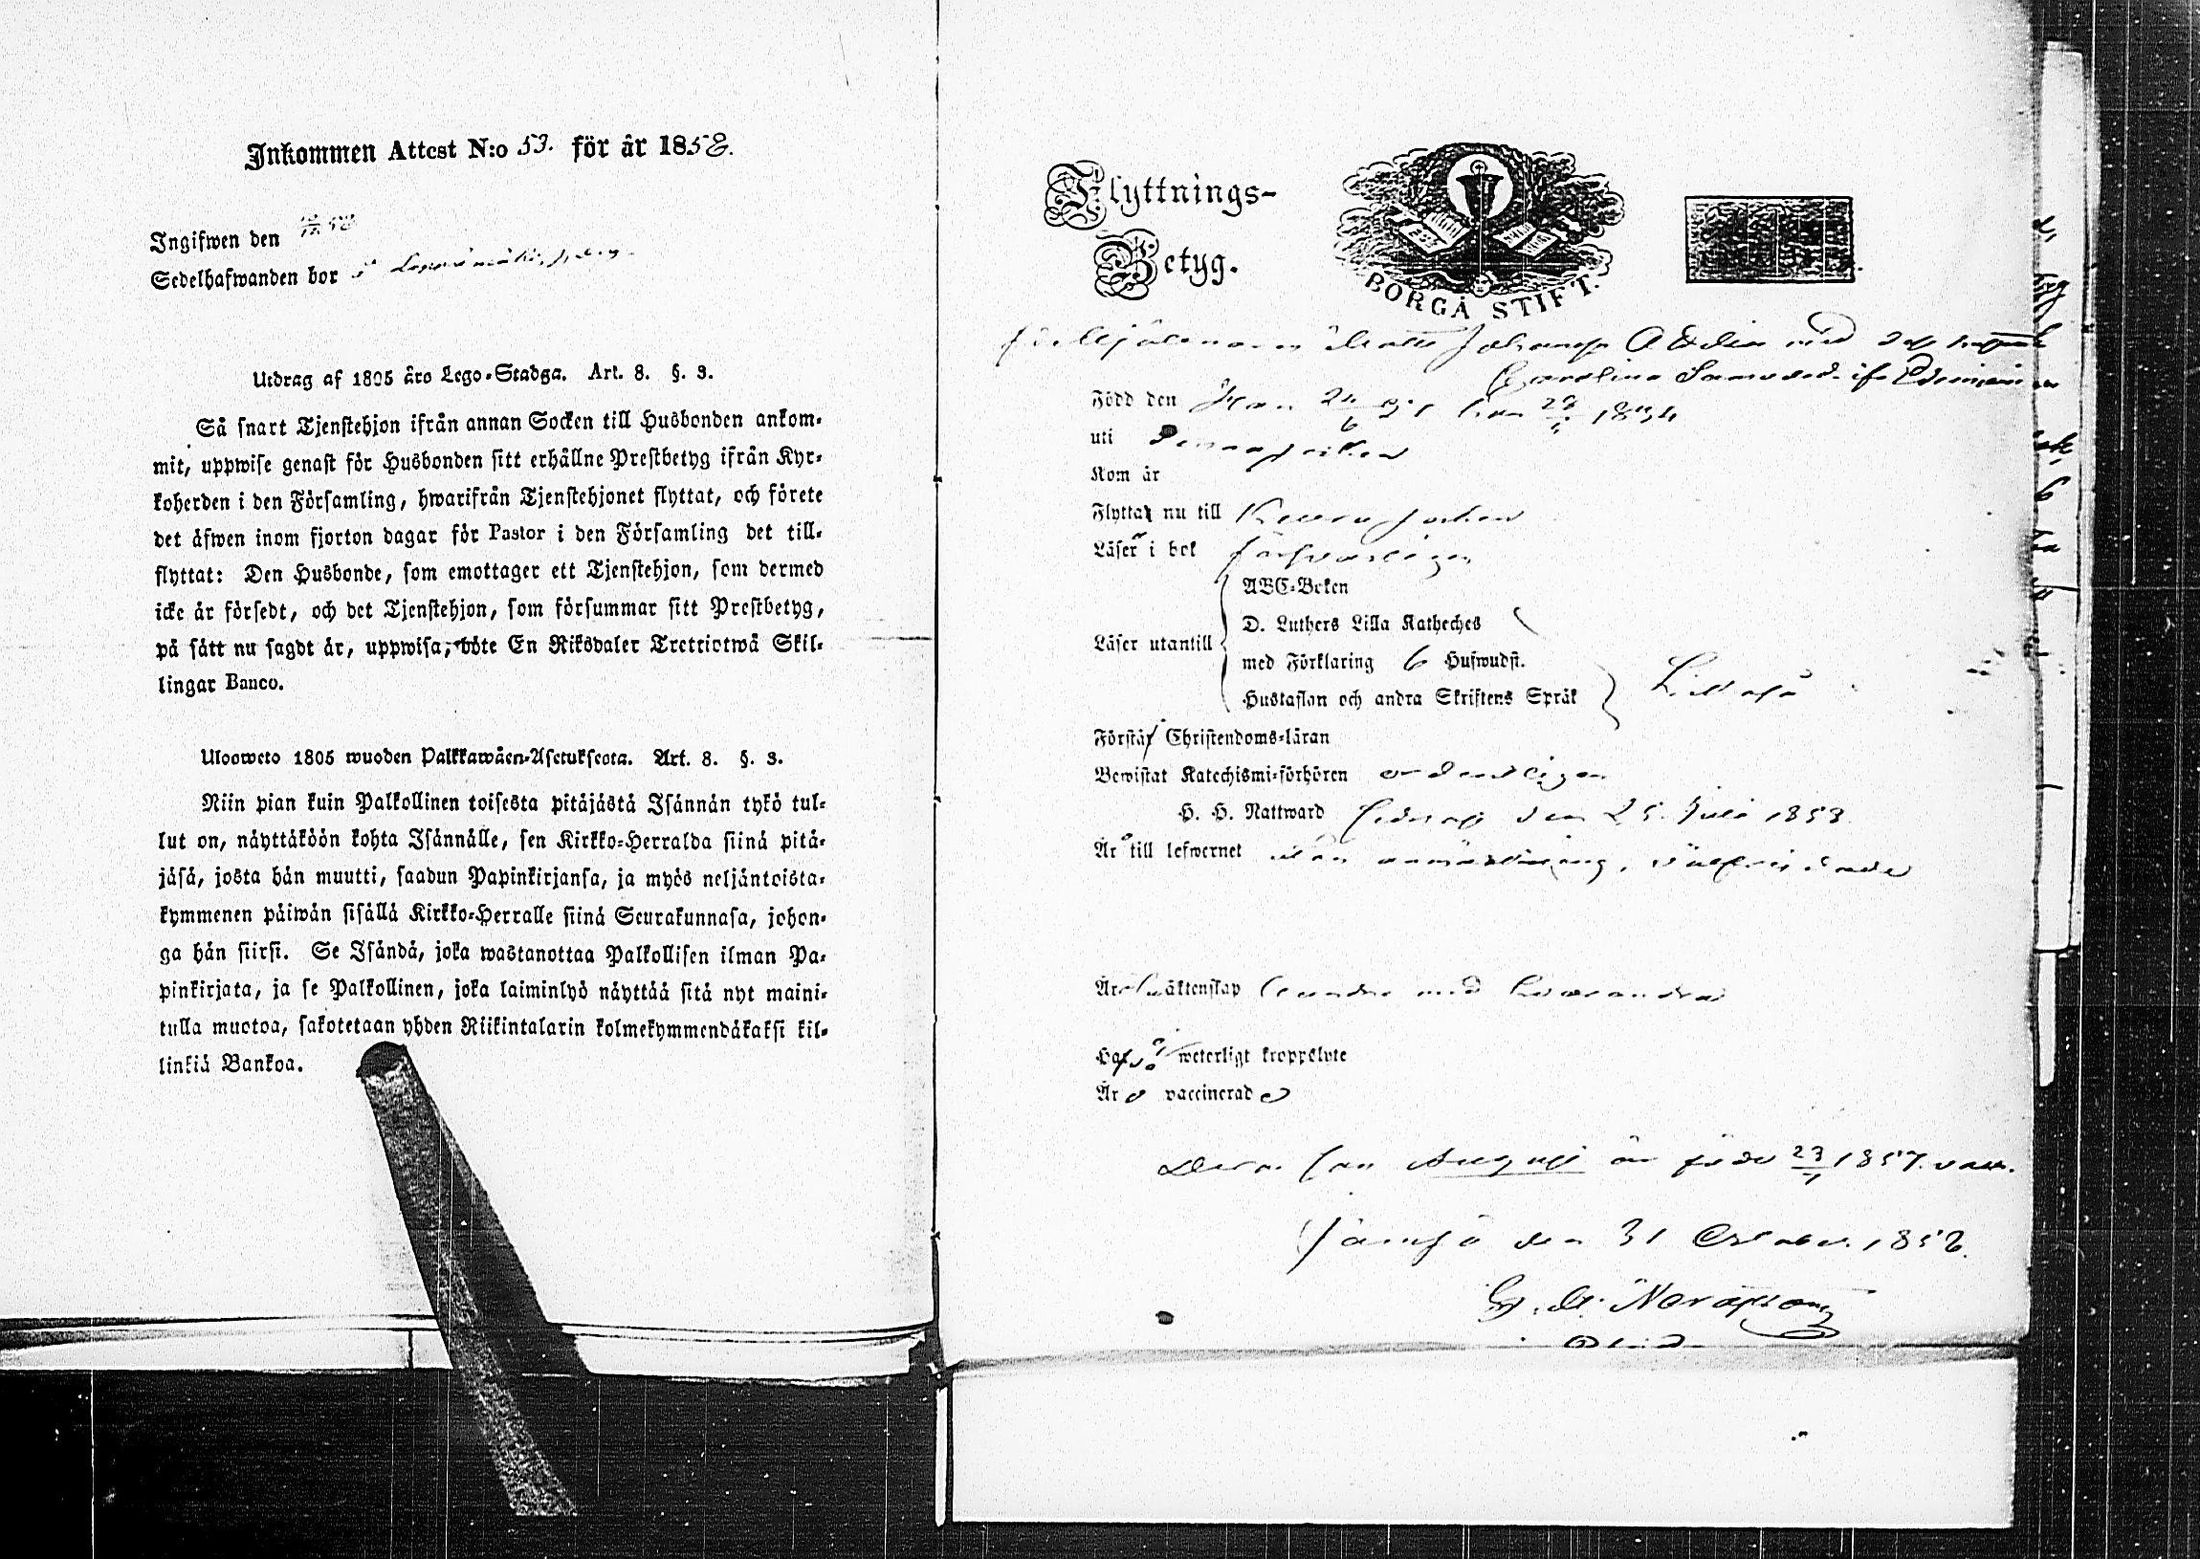 Inkommen Attest N:o 53. för år 1858.
Ingifwen den
Sedelhafwanden bor
Utdrag af 1805 års Lego-Stadga. Art. 8. §. 3.
Så snart Tjenstehjon ifrån annan Socken till Husbonden ankom-
mit, uppwise genast för Husbonden sitt erhållne Prestbetyg ifrån Kyr-
koherden i den Församling, hwarifrån Tjenstehjonet flyttat, och förete
det äfwen inom fjorton dagar för Pastor i den Församling det till-
flyttat: Den Husbonde, som emottager ett Tjenstehjon, som dermed
icke är försedt, och det Tjenstehjon, som försummar sitt Prestbetyg,
på sätt nu sagdt är, uppwisa, böte En Riksdaler Trettiotwå Skil-
lingar Banco.
Ulosweto 1805 wuoden Palkkawäen-Asetuksesta. Art. 8. §. 3.
Niin pian kuin Palkollinen toisesta pitäjästä Isännän tykö tul-
lut on, näyttäköön kohta Isännälle, sen Kirkko-Herralda siinä pitä-
jäsä, josta hän muutti, saadun Papinkirjansa, ja myös neljäntoista-
kymmenen päiwän sisällä Kirkko-Herralle siinä Seurakunnasa, johon-
ga hän siirsi. Se Isändä, joka wastanottaa Palkollisen ilman Pa-
pinkirjata, ja se Palkollinen, joka laiminlyö näyttää sitä nyt maini-
tulla muotoa, sakotetaan yhden Riikintalarin kolmekymmendäkaksi kil-
linkiä Bankoa.
Flyttnings-
Betyg.
BORGÅ STIFT.
Johansson med
Carolina
Född den Han 24/6 hon 1834
uti
Kom är
Flyttar nu till Keuru socken
Läser i bok försvarligen
ABC-Boken
D. Luthers Lilla Kateches
Läser utantill
med Förklaring 6 Hufwudst.
Hustaflan och andra Skriftens Språk
Förstår Christendoms-läran
Bewistat Katechismi-förhören ordentligen
H. H. Nattward sednast den 25 Juli 1858
Är till lefwernet utan anmärkning, välfrejdade
Är äktenskap med hvarandra
Haf weterligt kroppslyte
Äro vaccinerade
Deras son August är född 23/ 1857. vacc.
Jämsä den 31 October 1858.